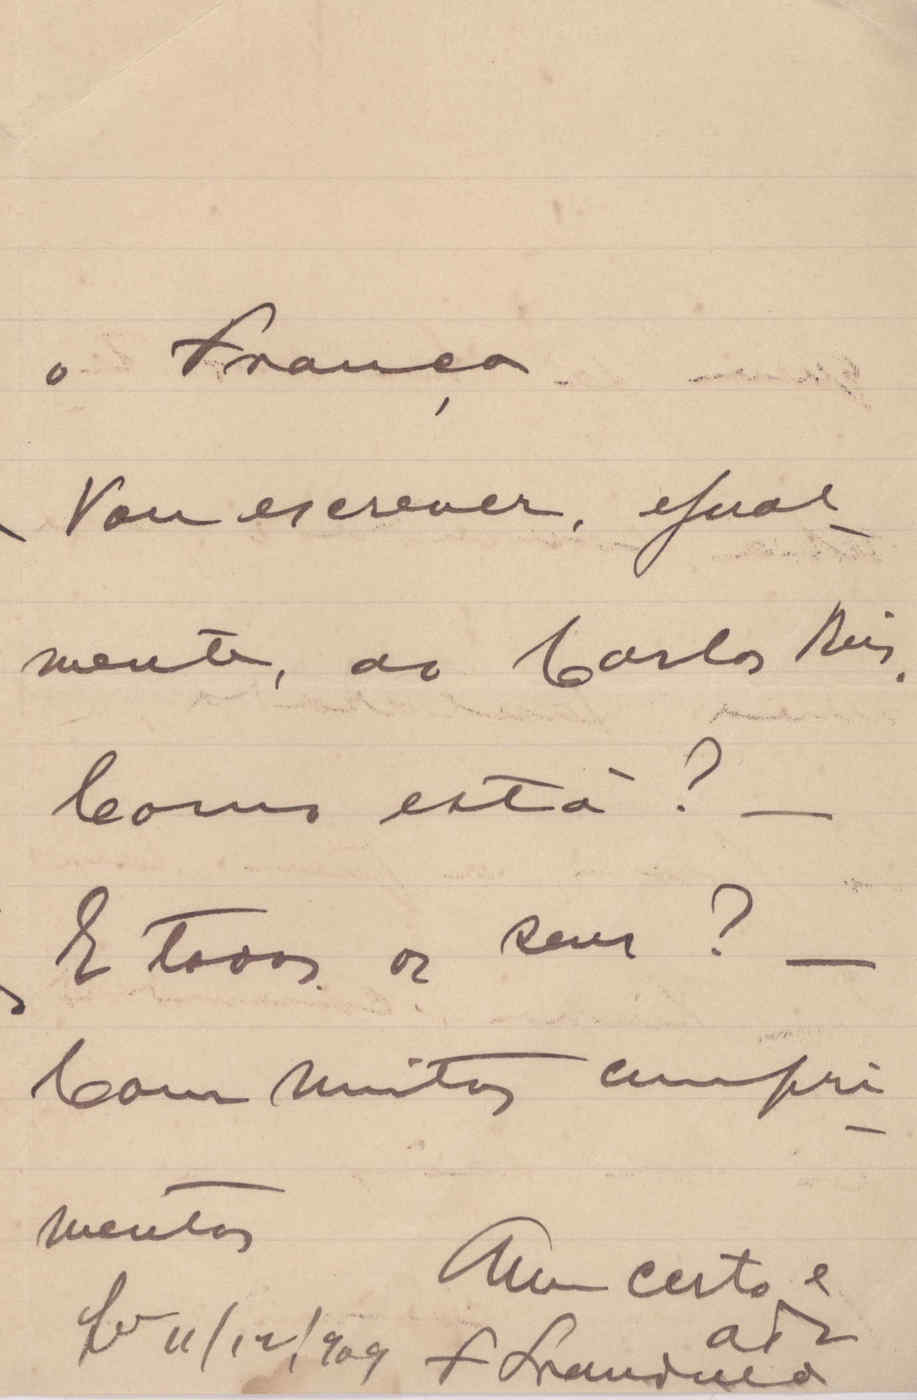 o França
Vou escrever, egual-
mente, ao Carlos Reis.
Como está? —
E todos os seus? —
Com muitos cumpri-
mentos
Amº certo e
11/12/909